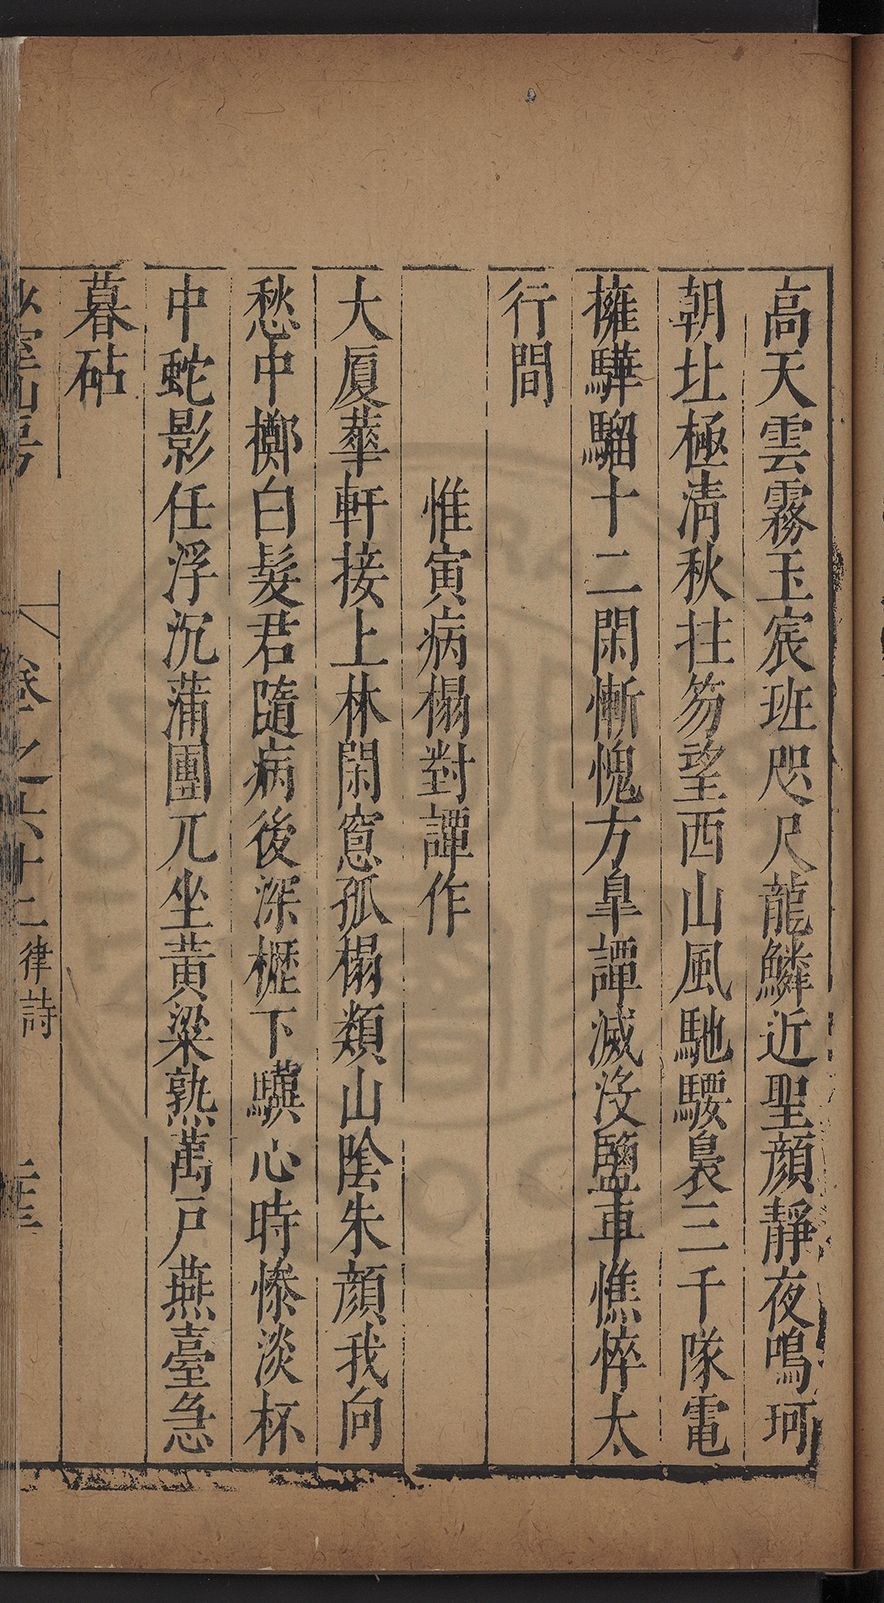 高天雲霧玉宸班咫尺龍鱗近聖顔靜夜鳴珂
朝北極淸秋拄笏望西山風馳騕褭三千隊電
擁驊騮十二閑慚愧方臯譚滅没鹽車憔悴太
行間
惟寅病榻對譚作
大厦華軒接上林閑窻孤榻類山陰朱顔我向
愁中擲白髮君隨病後深櫪下驥心時慘淡杯
中蛇影任浮沉蒲團兀坐黄粱熟萬戸燕臺急
暮砧
室山房
卷之六十二
律詩